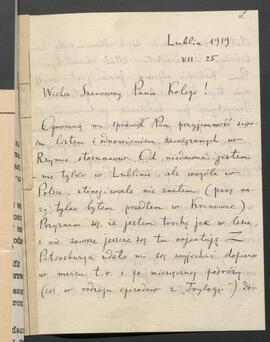 Lublin 1919
VII 25
Wielce Szanowny Panie Kolego!
Ogromną mi sprawił Pan przyjemność swo-
im listem i odnowieniem zawiązanych w
Rzymie stosunków. Od niedawna jestem
nie tylko w Lublinie ale wogóle w
Polsce, której wcale nie znałem (parę ra-
zy tylko byłem przedtem w Krakowie).
Przyznam się, że jestem trochę jak w lesie,
i nie zawsze jeszcze się tu orjentuję. Z
Petersburga udało mi się wyjechać dopiero
w marcu t. r. i po miesięcznej podróży
(coś w rodzaju epizodów z "Trylogji") do-